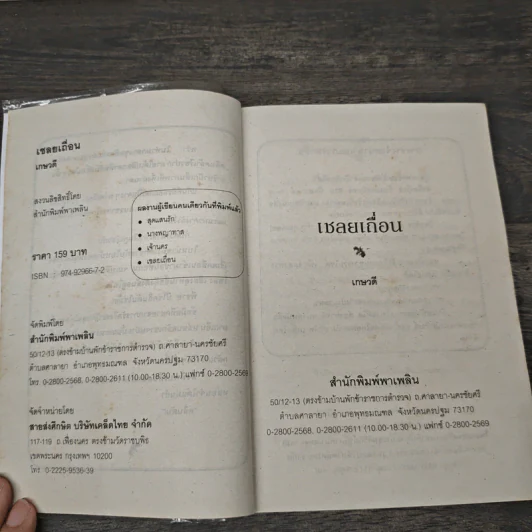 เชลยเถื่อน
เกษวดี
สงวนลิขสิทธิ์โดย
สำนักพิมพ์พาเพลิน
ผลงานผู้เขียนคนเดียวกันที่พิมพ์แล้ว
● สุดแสนรัก
● นางพญาทาส
● เจ้านคร
● เชลยเถื่อน
ราคา 159 บาท
ISBN 974-92966-7-2
จัดพิมพ์โดย
สำนักพิมพ์พาเพลิน
50/12-13 (ตรงข้ามบ้านพักข้าราชการตำรวจ) ถ.ศาลายา-นครชัยศรี
ตำบลศาลายา อำเภอพุทธมณฑล จังหวัดนครปฐม 73170
โทร 0-2800-2568, 0-2800-2611 (10.00-18.30 น.) แฟกซ์ 0-2800-2569
จัดจำหน่ายโดย
สายส่งศึกษิต บริษัทเคล็ดไทย จำกัด
117-119 ถ.เฟื่องนคร ตรงข้ามวัดราชบพิธ
เขตพระนคร กรุงเทพฯ 10200
โทร 0-2225-9536-39
เชลยเถื่อน
เกษวดี
สำนักพิมพ์พาเพลิน
50/12-13 (ตรงข้ามบ้านพักข้าราชการตำรวจ) ถ.ศาลายา-นครชัยศรี
ตำบลศาลายา อำเภอพุทธมณฑล จังหวัดนครปฐม 73170
0-2800-2568, 0-2800-2611 (10.00-18.30 น.) แฟกซ์ 0-2800-2569